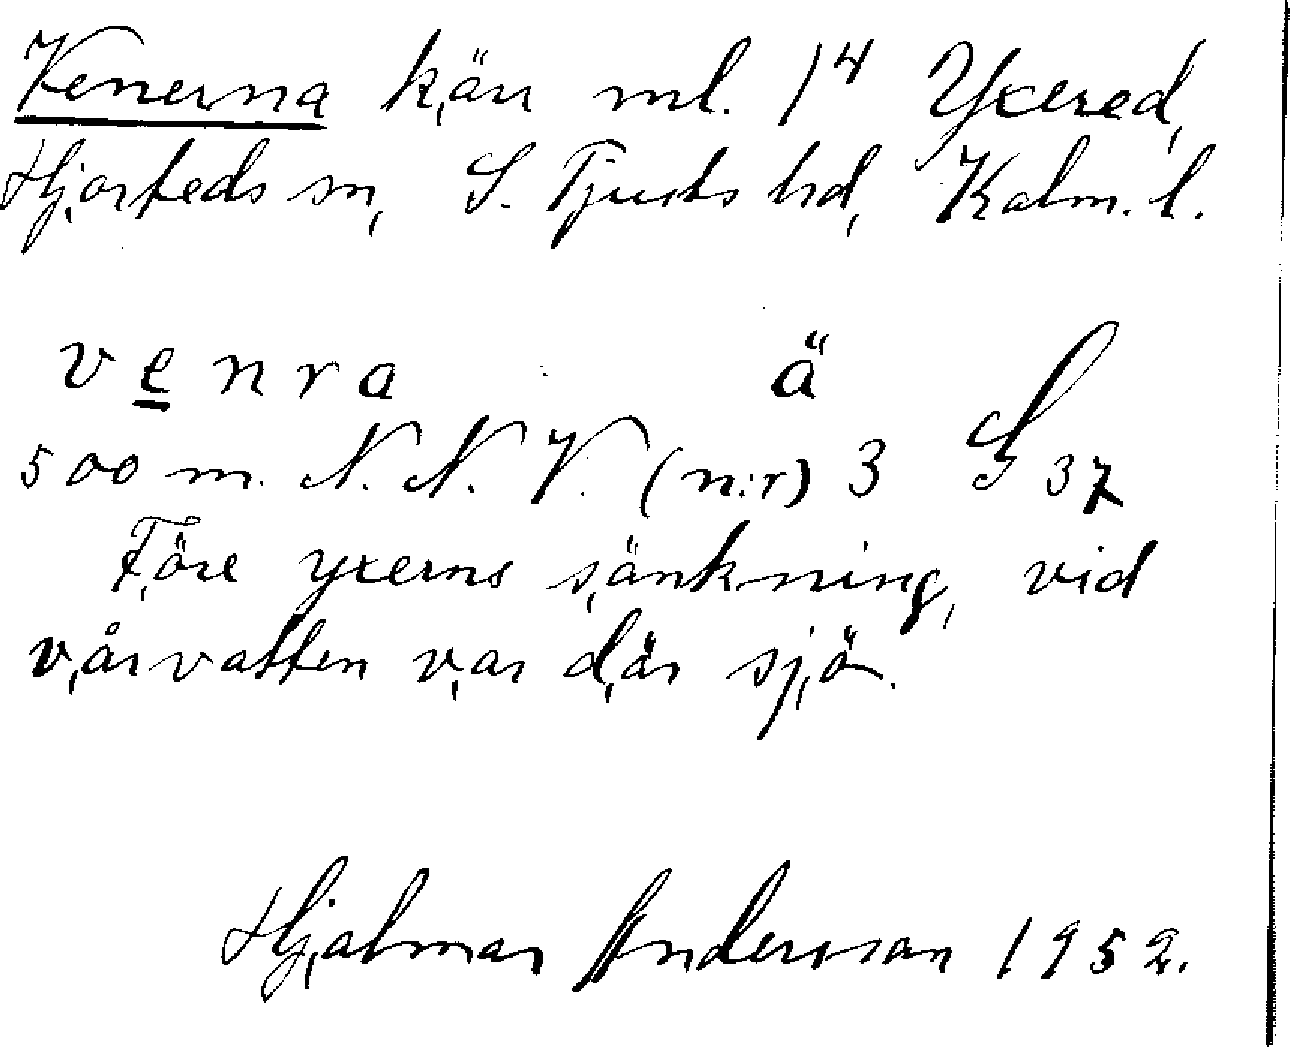 Venerna kärr ml. 1⁴ Yxered,
Hjorteds sn, S. Tjusts hd, Kalm. l.
venra ä
500 m. N. N. V. (n:r) 3 S 37
Före yxerns sänkning, vid
vårvatten var där sjö.
Hjalmar Andersson 1952.